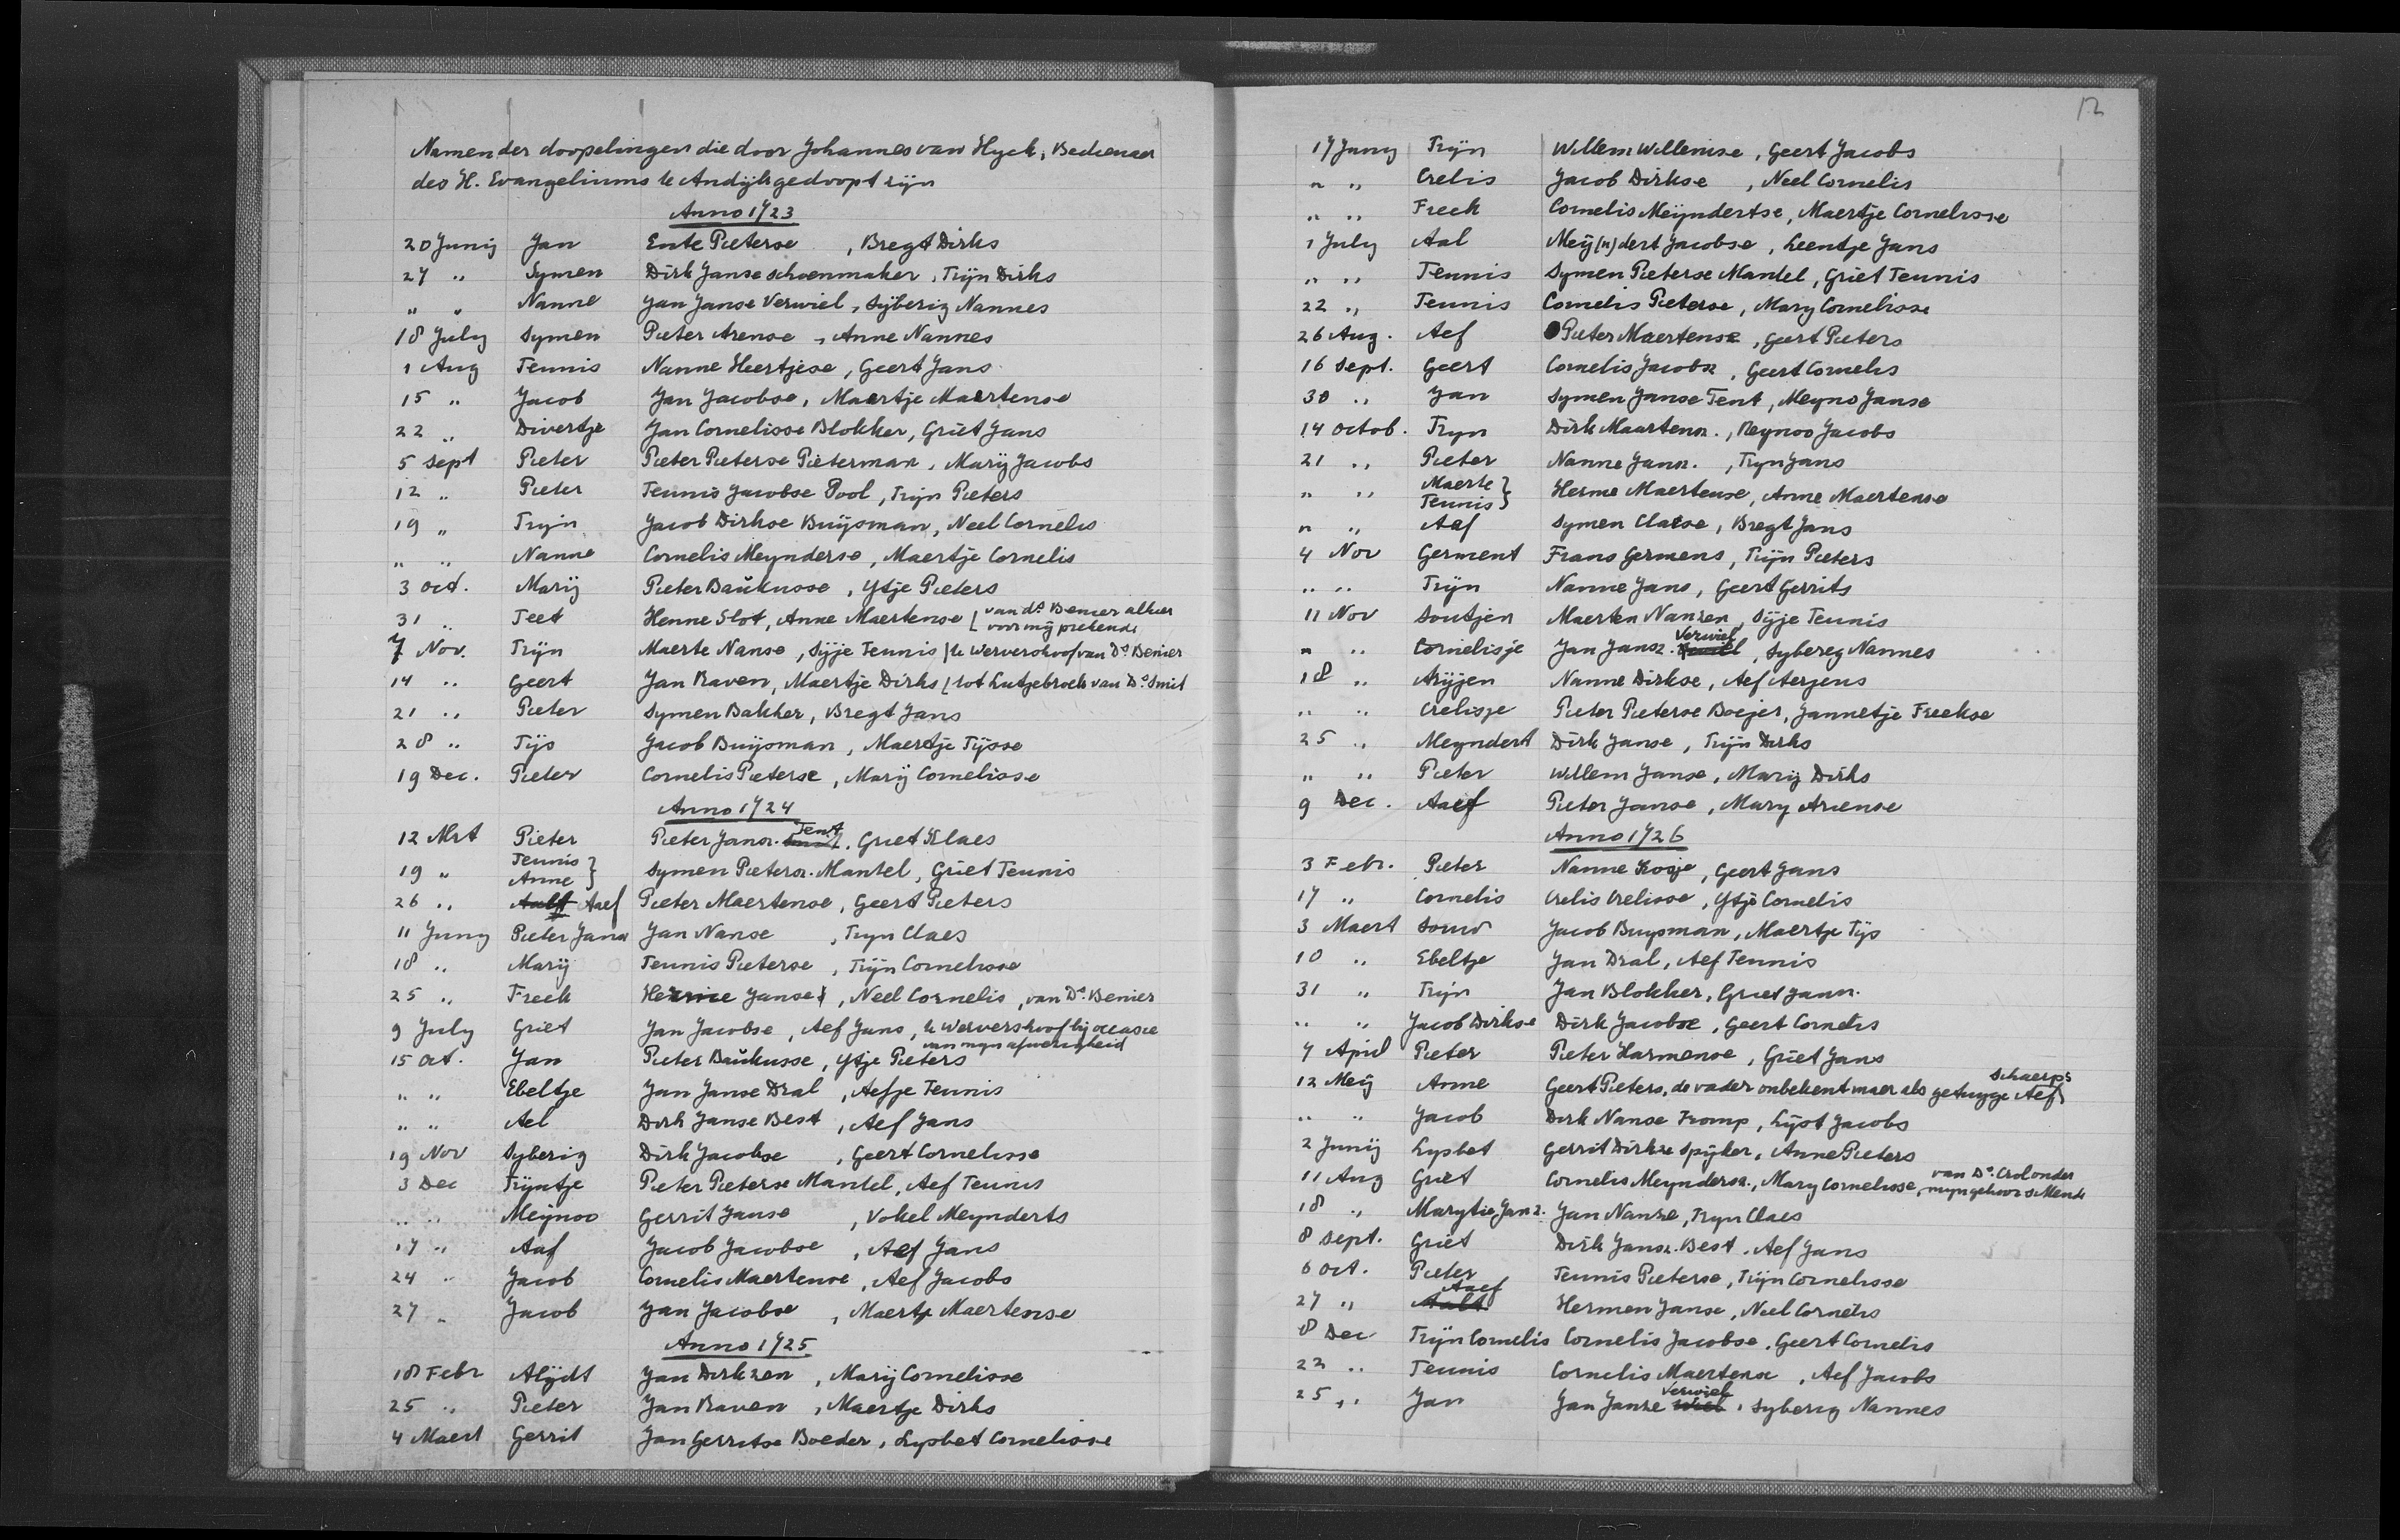 Namen der doopelingen die door Johannes van Hyck, Bedienaer
des H. Evangeliums te Andijk gedoopt zijn
Anno 1723
20 Junij Jan Ente Pieterse , Bregt Dirks
27 „ Symen Dirk Janse schoenmaker, Trijn Dirks
„ „ Nanne Jan Janse Verwiel, Sijberig Nannes
18 July Symen Pieter Arense , Anne Nannes
1 Aug Teunis Nanne Heertjese, Geert Jans
15 „ Jacob Jan Jacobse, Maertje Maertense
22 „ Divertje Jan Cornelisse Blokker, Griet Jans
5 Sept Pieter Pieter Pieterse Pieterman, Marij Jacobs
12 „ Pieter Teunis Jacobse Pool, Trijn Pieters
19 „ Tryn Jacob Dirkse Buijsman, Neel Cornelis
„ „ Nanne Cornelis Meynderse, Maertje Cornelis
3 Oct. Marij Pieter Baŭkusse, Ytje Pieters
31 „ Teet Henne Slot, Anne Maertense [van ds. Benier alhier
voor mij prekende
7 Nov. Trijn Maerte Nanse, Sijje Teunis | te Wervershoof van Ds. Benier
14 „ Geert Jan Raven, Maertje Dirks | tot Lutjebroek van Ds. Smit
21 „ Pieter Symen Bakker, Bregt Jans
28 „ Tijs Jacob Buijsman, Maertje Tijsse
19 Dec. Pieter Cornelis Pieterse, Marij Cornelisse
Anno 1724
12 Mrt Pieter Pieter Jansz. Tent, Griet Klaes
19 „ Teunis } Anne } Symen Pietersz. Mantel, Griet Teunis
26 „ Aalt Aaef Pieter Maertense, Geert Pieters
11 Juny Pieter Jansz Jan Nanse , Tryn Claes
18 „ Marij Teunis Pieterse , Trijn Cornelisse
25 „ Freek Hermce Janse, Neel Cornelis, van Ds. Benier
9 July Griet Jan Jacobse, Aef Jans, te Wervershoof bij occasie
van mijn afwezigheid
15 Oct. Jan Pieter Baŭkusse, Ytje Pieters
„ „ Ebeltje Jan Janse Dral , Aefje Teunis
„ „ Ael Dirk Janse Best , Aef Jans
19 Nov Syberig Dirk Jacobse , Geert Cornelisse
3 Dec Trijntje Pieter Pieterse Mantel, Aef Teunis
„ „ Meijnoo Gerrit Janse , Vokel Meynderts
17 „ Aaf Jacob Jacobse , Aef Jans
24 „ Jacob Cornelis Maertense, Aef Jacobs
27 „ Jacob Jan Jacobse , Maertje Maertense
Anno 1725
18 Febr Alijdt Jan Dirkzen , Marij Cornelisse
25 „ Pieter Jan Raven , Maertje Dirks
4 Maert Gerrit Jan Gerritse Boeder, Lysbet Cornelisse
12
17 Juny Trijn Willem Willemse, Geert Jacobs
„ „ Crelis Jacob Dirkse , Neel Cornelis
„ „ Freek Cornelis Meijndertse, Maertje Cornelisse
1 July Aal Meij(n)dert Jacobse, Leentje Jans
„ „ Teunis Symen Pieterse Mantel, Griet Teunis
22 „ Teunis Cornelis Pieterse, Mary Cornelisse
26 Aug. Aef Pieter Maertense, Geert Pieters
16 Sept. Geert Cornelis Jacobsz, Geert Cornelis
30 „ Jan Symen Janse Tent, Meyno Janse
14 Octob. Tryn Dirk Maartensz., Reynoo Jacobs
21 „ Pieter Nanne Jansz. , Tryn Jans
„ „ Maerte } Teunis } Herme Maertense, Anne Maertense
„ „ Aaf Symen Claese, Bregt Jans
4 Nov Germent Frans Germens, Trijn Pieters
„ „ Trijn Nanne Jans, Geert Gerrits
11 Nov Soutjen Maerten Nanzen, Sijje Teunis
„ „ Cornelisje Jan Jansz. Verwiel, Sybereg Nannes
18 „ Arijjen Nanne Dirkse, Aef Aerjens
„ „ Crelisje Pieter Pieterse Boejer, Jannetje Freekse
25 „ Meyndert Dirk Janse, Trijn Dirks
„ „ Pieter Willem Janse, Marij Dirks
9 Dec. Aaef Pieter Janse, Mary Ariense
Anno 1726
3 Febr. Pieter Nanne Kosje, Geert Jans
17 „ Cornelis Crelis Crelisse, Ytje Cornelis
3 Maert Souw Jacob Buysman, Maertje Tijs
10 „ Ebeltje Jan Dral, Aef Teunis
31 „ Trijn Jan Blokker, Griet Jansz.
„ „ Jacob Dirkse Dirk Jacobse, Geert Cornelis
7 April Pieter Pieter Harmense, Griet Jans
12 Meij Anne Geert Pieters, de vader onbekent maer als getuygge Aef Schaerps
„ „ Jacob Dirk Nanse Tromp, Lijst Jacobs
2 Junij Lysbet Gerrit Dirkse Spijker, Anne Pieters
11 Aug Griet Cornelis Meyndersz., Mary Cornelisse, van Ds. Crol onder
mijn gehoor sittende
18 „ Marytie Jansz. Jan Nanse, Tryn Claes
8 Sept. Griet Dirk Jansz. Best, Aef Jans
6 Oct. Pieter Teunis Pieterse, Trijn Cornelisse
27 „ Aalt Aaef Hermen Janse, Neel Cornelis
8 Dec Trijn Cornelis Cornelis Jacobse, Geert Cornelis
22 „ Teunis Cornelis Maertensz, Aef Jacobs
25 „ Jan Jan Janse Verwiel, Syberig Nannes